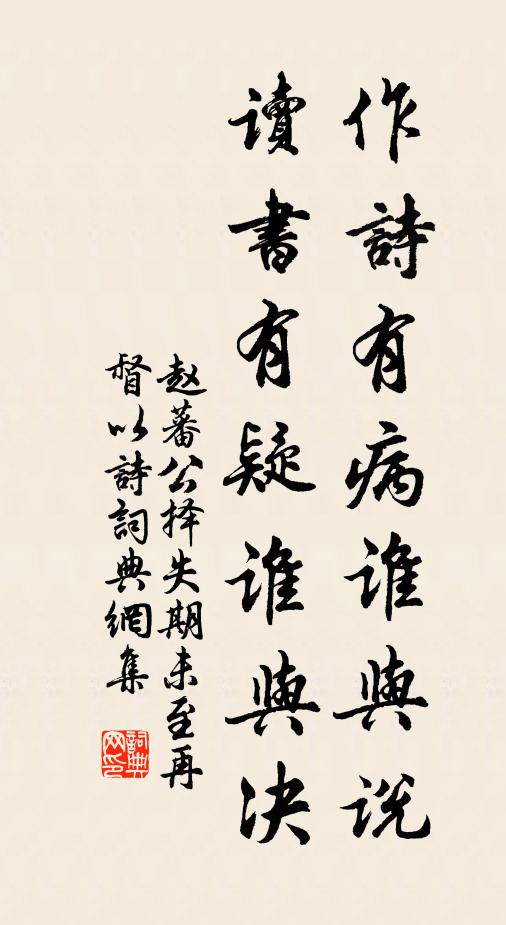 作詩有病谁與说
讀書有疑谁與决
赵蕃公择失期未至再
督以詩詞典網集
詞典网印